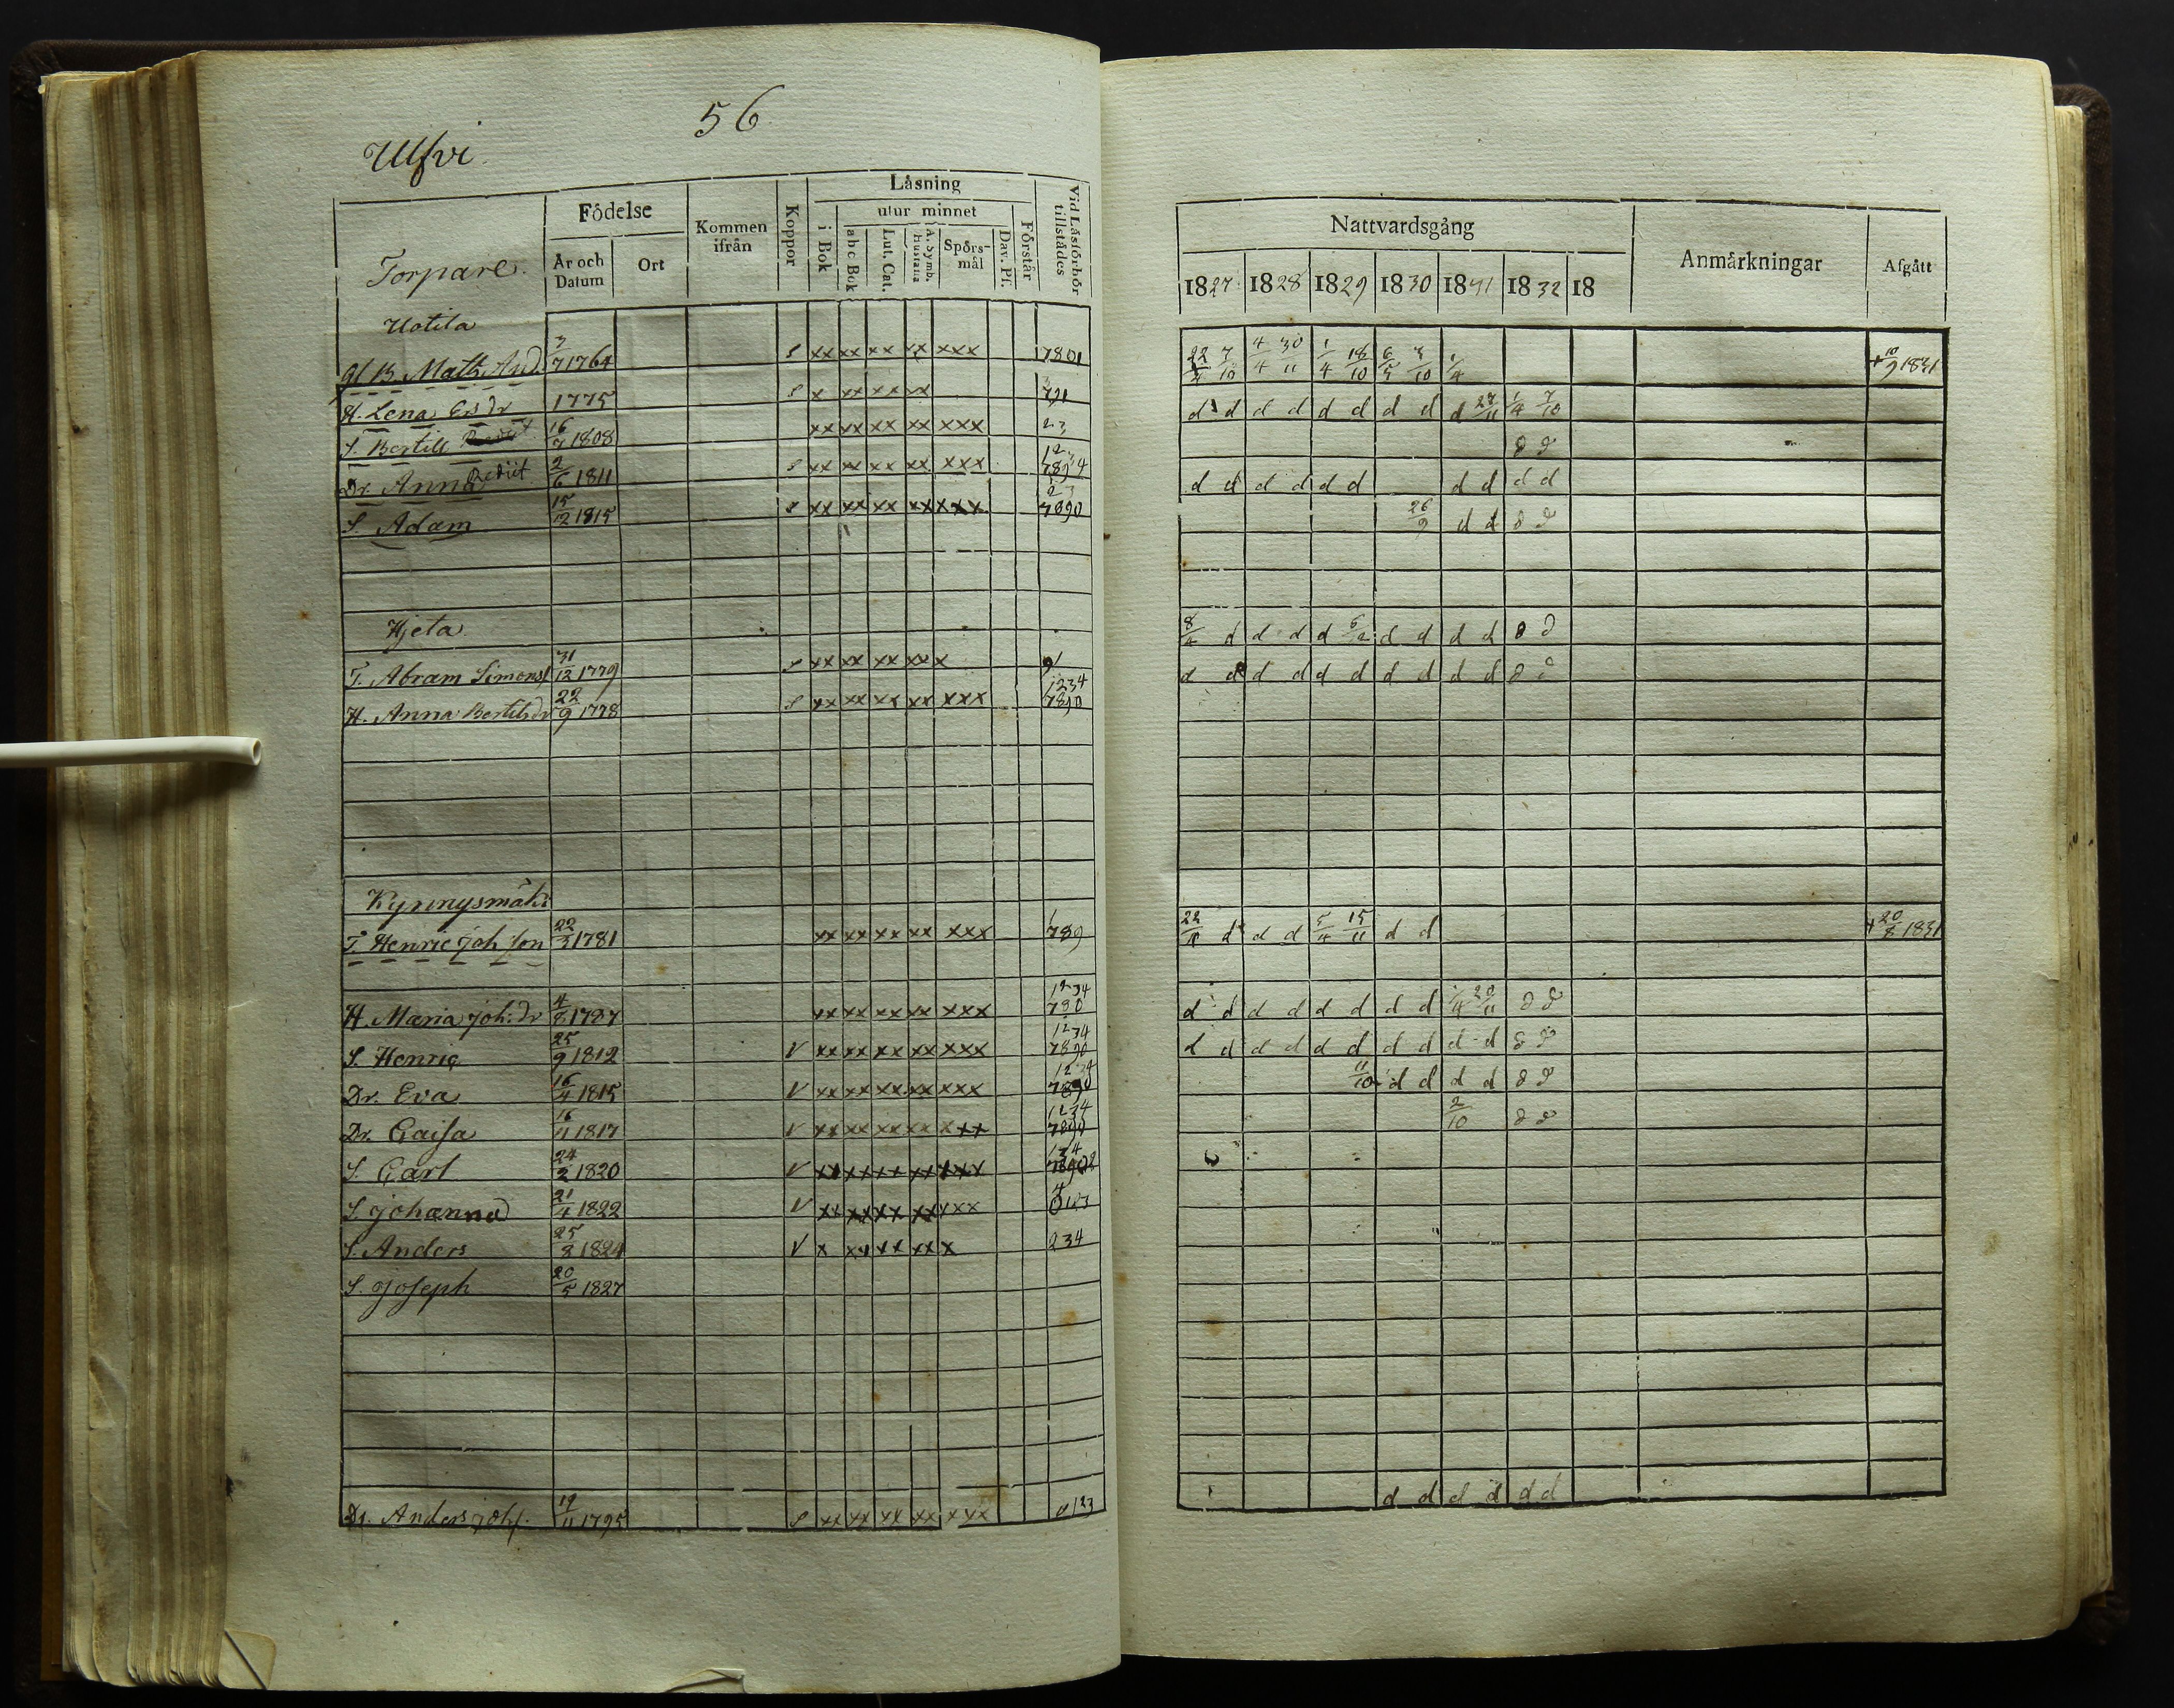 56
Ulfvi
Torpare.
Födelse
År och Datum
Ort
Kommen ifrån
Koppor
Läsning
i Bok
utur minnet
abc Bok
Lut. Cat.
A. Symb. Hustafla
Spörs-mål
Dav. Ps.
Förstår
Vid Läsförhör tillstädes
Nattvardsgång
1827 1828 1829 1830 1831 1832 18
Anmärkningar
Afgått
Uotila
gl B. Math. And. 3/7 1764 S xx xx xx xx xxx 7801 22/4 7/10 4/4 30/11 1/4 18/10 6/5 3/10 1/4 + 10/9 1831
H. Lena Ersdr 1775 S x xx xx xx 791 d d d d d d d d d 27/11 1/4 7/10
S. Bertill 16/7 1808 xx xx xx xx xxx 23 d d
Dr. Anna Rediit 2/6 1811 S xx xx xx xx xxx 12 34 789 d d d d d d d d d d
S. Adam 15/12 1815 S xx xx xx xx xxx 23 7890 26/9 d d d d
Hjeta
T. Abram Simonss 31/12 1779 S xx xx xx xx x 91 8/4 d d d d 6/2 d d d d d d
H. Anna Bertilsdr 22/9 1778 S xx xx xx xx xxx 1234 7890 d d d d d d d d d d d d
Kynnysmäki
T. Henric Joh.son 22/3 1781 xx xx xx xx xxx 1 789 22/4 d d d 5/4 15/11 d d + 20/8 1831
H. Maria Joh.dr 4/8 1787 xx xx xx xx xxx 1234 780 d d d d d d d d 1/4 20/11 d d
S. Henric 25/9 1812 V xx xx xx xx xxx 1234 7890 d d d d d d d d d d d d
Dr. Eva 16/4 1815 V xx xx xx xx xxx 1234 7890 11/10 d d d d d d
Dr. Caisa 16/11 1817 V xx xx xx xx xxx 1234 7890 2/10 d d
S. Carl 24/2 1820 V xx xx xx xx xxx 134 7890
S. Johannes 21/4 1822 V xx xx xx xx xxx 4 0123
S. Anders 25/8 1824 V x xx xx xx x 234
S. Joseph 20/5 1827
Dr. Anders Johs. 19/11 1795 S xx xx xx xx xxx 0123 d d d d d d